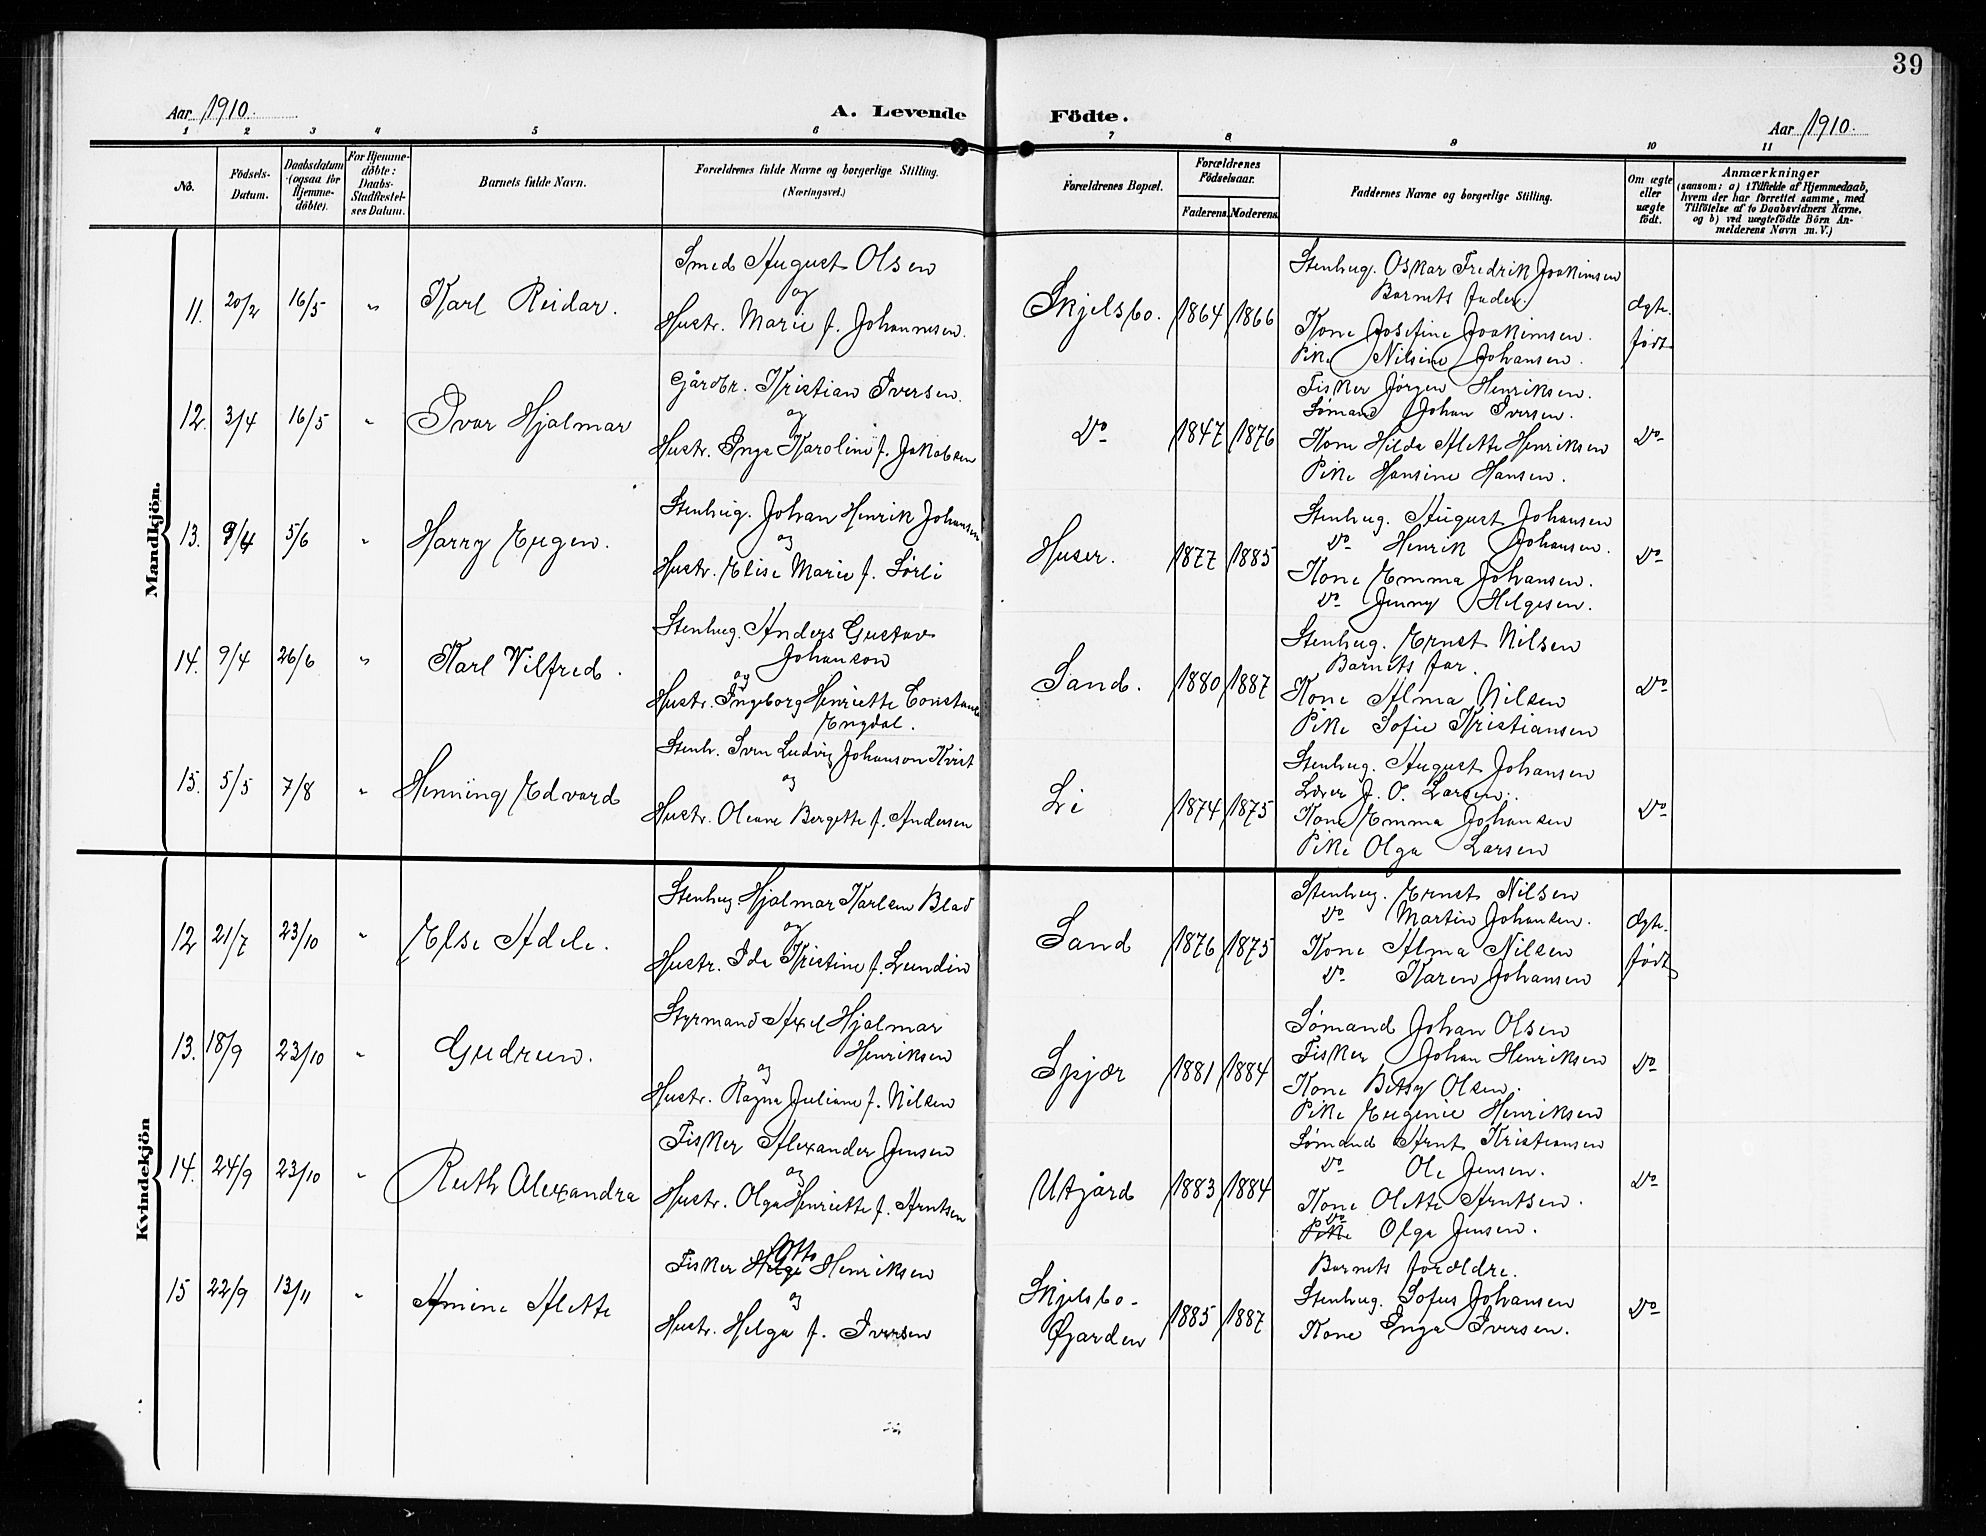 39
Aar 1910.
A. Levende Födte.
Aar 1910.
1 2 3 4 5 6 7 8 9 10 11
No.
Födsels-Datum.
Daabsdatum (ogsaa for Hjemme-döbte).
For Hjemme-döbte: Daabs-Stadfæstel-ses Datum.
Barnets fulde Navn.
Forældrenes fulde Navne og borgerlige Stilling.
(Næringsvei.)
Forældrenes Bopæl.
Forældrenes Födselsaar.
Faderens. Moderens.
Faddernes Navne og borgerlige Stilling.
Om ægte eller uægte födt.
Anmærkninger
(saasom: a) i Tilfælde af Hjemmedaab,
hvem der har forrettet samme, med
Tilföielse af to Daabsvidners Navne,
og b) ved uægtefödte Börn An-
melderens Navn m. V.)
Mandkjön.
11. 20/2 16/5 " Karl Reidar.
Smed August Olsen
og
Hustr. Marie f. Johannesen.
Skjelsbo. 1864 1866
Stenhug. Oskar Fredrik Joakimsen
Barnets fader.
Kone Josefine Joakimsen.
Pike Nilsine Johansen.
Ægte.
født
12. 3/4 16/5 " Ivar Hjalmar
Gårdbr. Kristian Iversen.
og
Hustr. Inga Karoline f. Jakobsen
Do 1847 1876
Fisker Jørgen Henriksen.
Sømand Johan Iversen.
Kone Hilda Alette Henriksen
Pike Hansine Hansen.
Do
13. 9/4 5/6 " Harry Eugen.
Stenhug. Johan Henrik Johansen
og
Hustr. Elise Marie f. Sørli
Huser. 1877 1885
Stenhug. August Johansen
Do Henrik Johansen.
Kone Emma Johansen.
Do Jenny Helgesen.
Do
14. 9/4 26/6 " Karl Vilfred.
Stenhug. Anders Gustav
Johanson
og
Hustr. Ingeborg Henriette Constance
Engdal.
Sand. 1880 1887
Stenhug. Ernst Nilsen
Barnets far.
Kone Alma Nilsen
Pike Sofie Kristiansen
Do
15. 5/5 7/8 " Henning Edvard
Stenh. Sven Ludvig Johanson Kvist
og
Hustr. Oleane Bergette f. Andersen
Li 1874 1875
Stenhug. August Johansen
Lærer J. O. Larsen.
Kone Emma Johansen
Pike Olga Larsen
Do
Kvindekjön
12 21/7 23/10 " Else Adele.
Stenhug Hjalmar Karlsen Blad
og
Hustr. Ida Kristine f. Lundin
Sand 1876 1875
Stenhug. Ernst Nilsen
Do Martin Johansen.
Kone Alma Nilsen
Do Karen Johansen
Ægte.
født
13. 18/9 23/10 " Gudrun.
Styrmand Axel Hjalmar
Henriksen
og
Hustr. Ragna Juliane f. Nilsen
Spjær 1881 1884
Sømand Johan Olsen
Fisker Johan Henriksen
Kone Betsy Olsen.
Pike Eugenie Henriksen
Do
14. 24/9 23/10 " Ruth Alexandra
Fisker Alexander Jensen
og
Hustr. Olga Henriette f. Arntsen
Utgård 1883 1884
Sømand Arnt Kristiansen
Do Ole Jensen.
Kone Olette Arntsen.
Do
Pike Olga Jensen.
Do
15 22/9 13/11 " Amine Alette
Otto
Fisker Helge Henriksen
og
Hustr. Helga f. Iversen
Skjelsbo-
Øgarden
1885 1887
Barnets forældre.
Stenhug. Sofus Johansen
Kone Inga Iversen.
Do